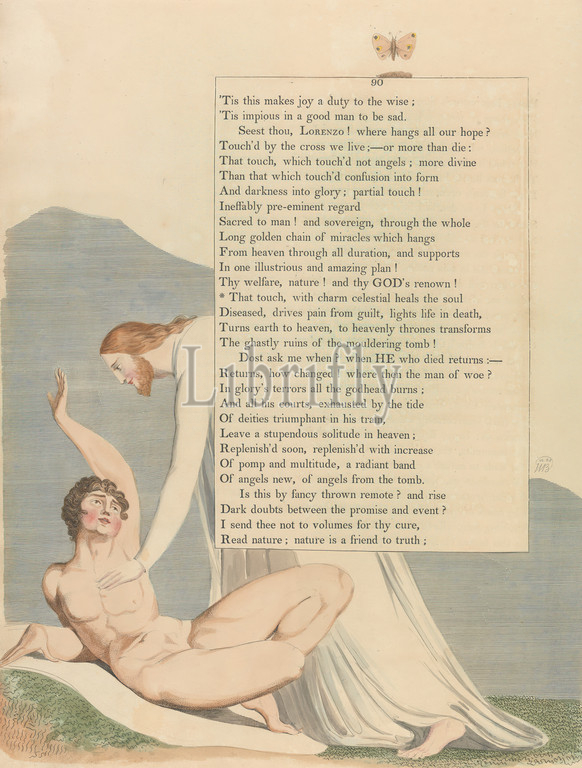 90
'Tis this makes joy a duty to the wise ;
'Tis impious in a good man to be sad.
Seest thou, LORENZO ! where hangs all our hope ?
Touch'd by the cross we live ;—or more than die :
That touch, which touch'd not angels ; more divine
Than that which touch'd confusion into form
And darkness into glory ; partial touch !
Ineffably pre-eminent regard
Sacred to man ! and sovereign, through the whole
Long golden chain of miracles which hangs
From heaven through all duration, and supports
In one illustrious and amazing plan !
Thy welfare, nature ! and thy GOD's renown !
* That touch, with charm celestial heals the soul
Diseased, drives pain from guilt, lights life in death,
Turns earth to heaven, to heavenly thrones transforms
The ghastly ruins of the mouldering tomb !
Dost ask me when ? when HE who died returns :—
Returns, how changed ! where then the man of woe ?
In glory's terrors all the godhead burns ;
And all his courts, exhausted by the tide
Of deities triumphant in his train,
Leave a stupendous solitude in heaven ;
Replenish'd soon, replenish'd with increase
Of pomp and multitude, a radiant band
Of angels new, of angels from the tomb.
Is this by fancy thrown remote ? and rise
Dark doubts between the promise and event ?
I send thee not to volumes for thy cure,
Read nature ; nature is a friend to truth ;
Librifly